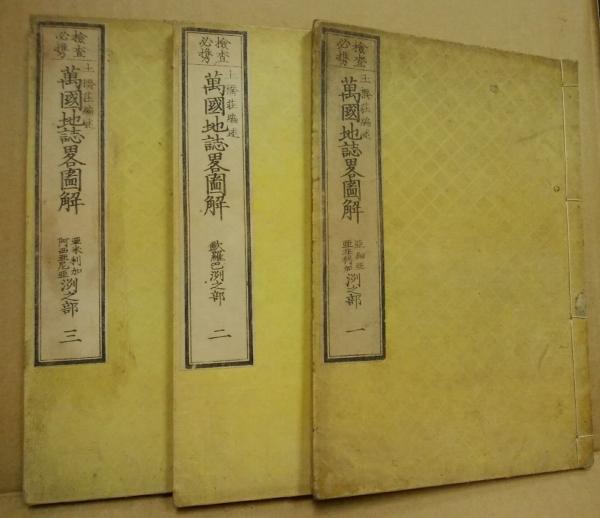 檢査
必携
土橋荘編述
萬國地誌畧圖解
亞細亞
亞非利加
洲之部
一
檢査
必携
土橋荘編述
萬國地誌畧圖解
歐羅巴洲之部
二
檢査
必携
土橋荘編述
萬國地誌畧圖解
亞米利加
阿西亞尼亞
洲之部
三